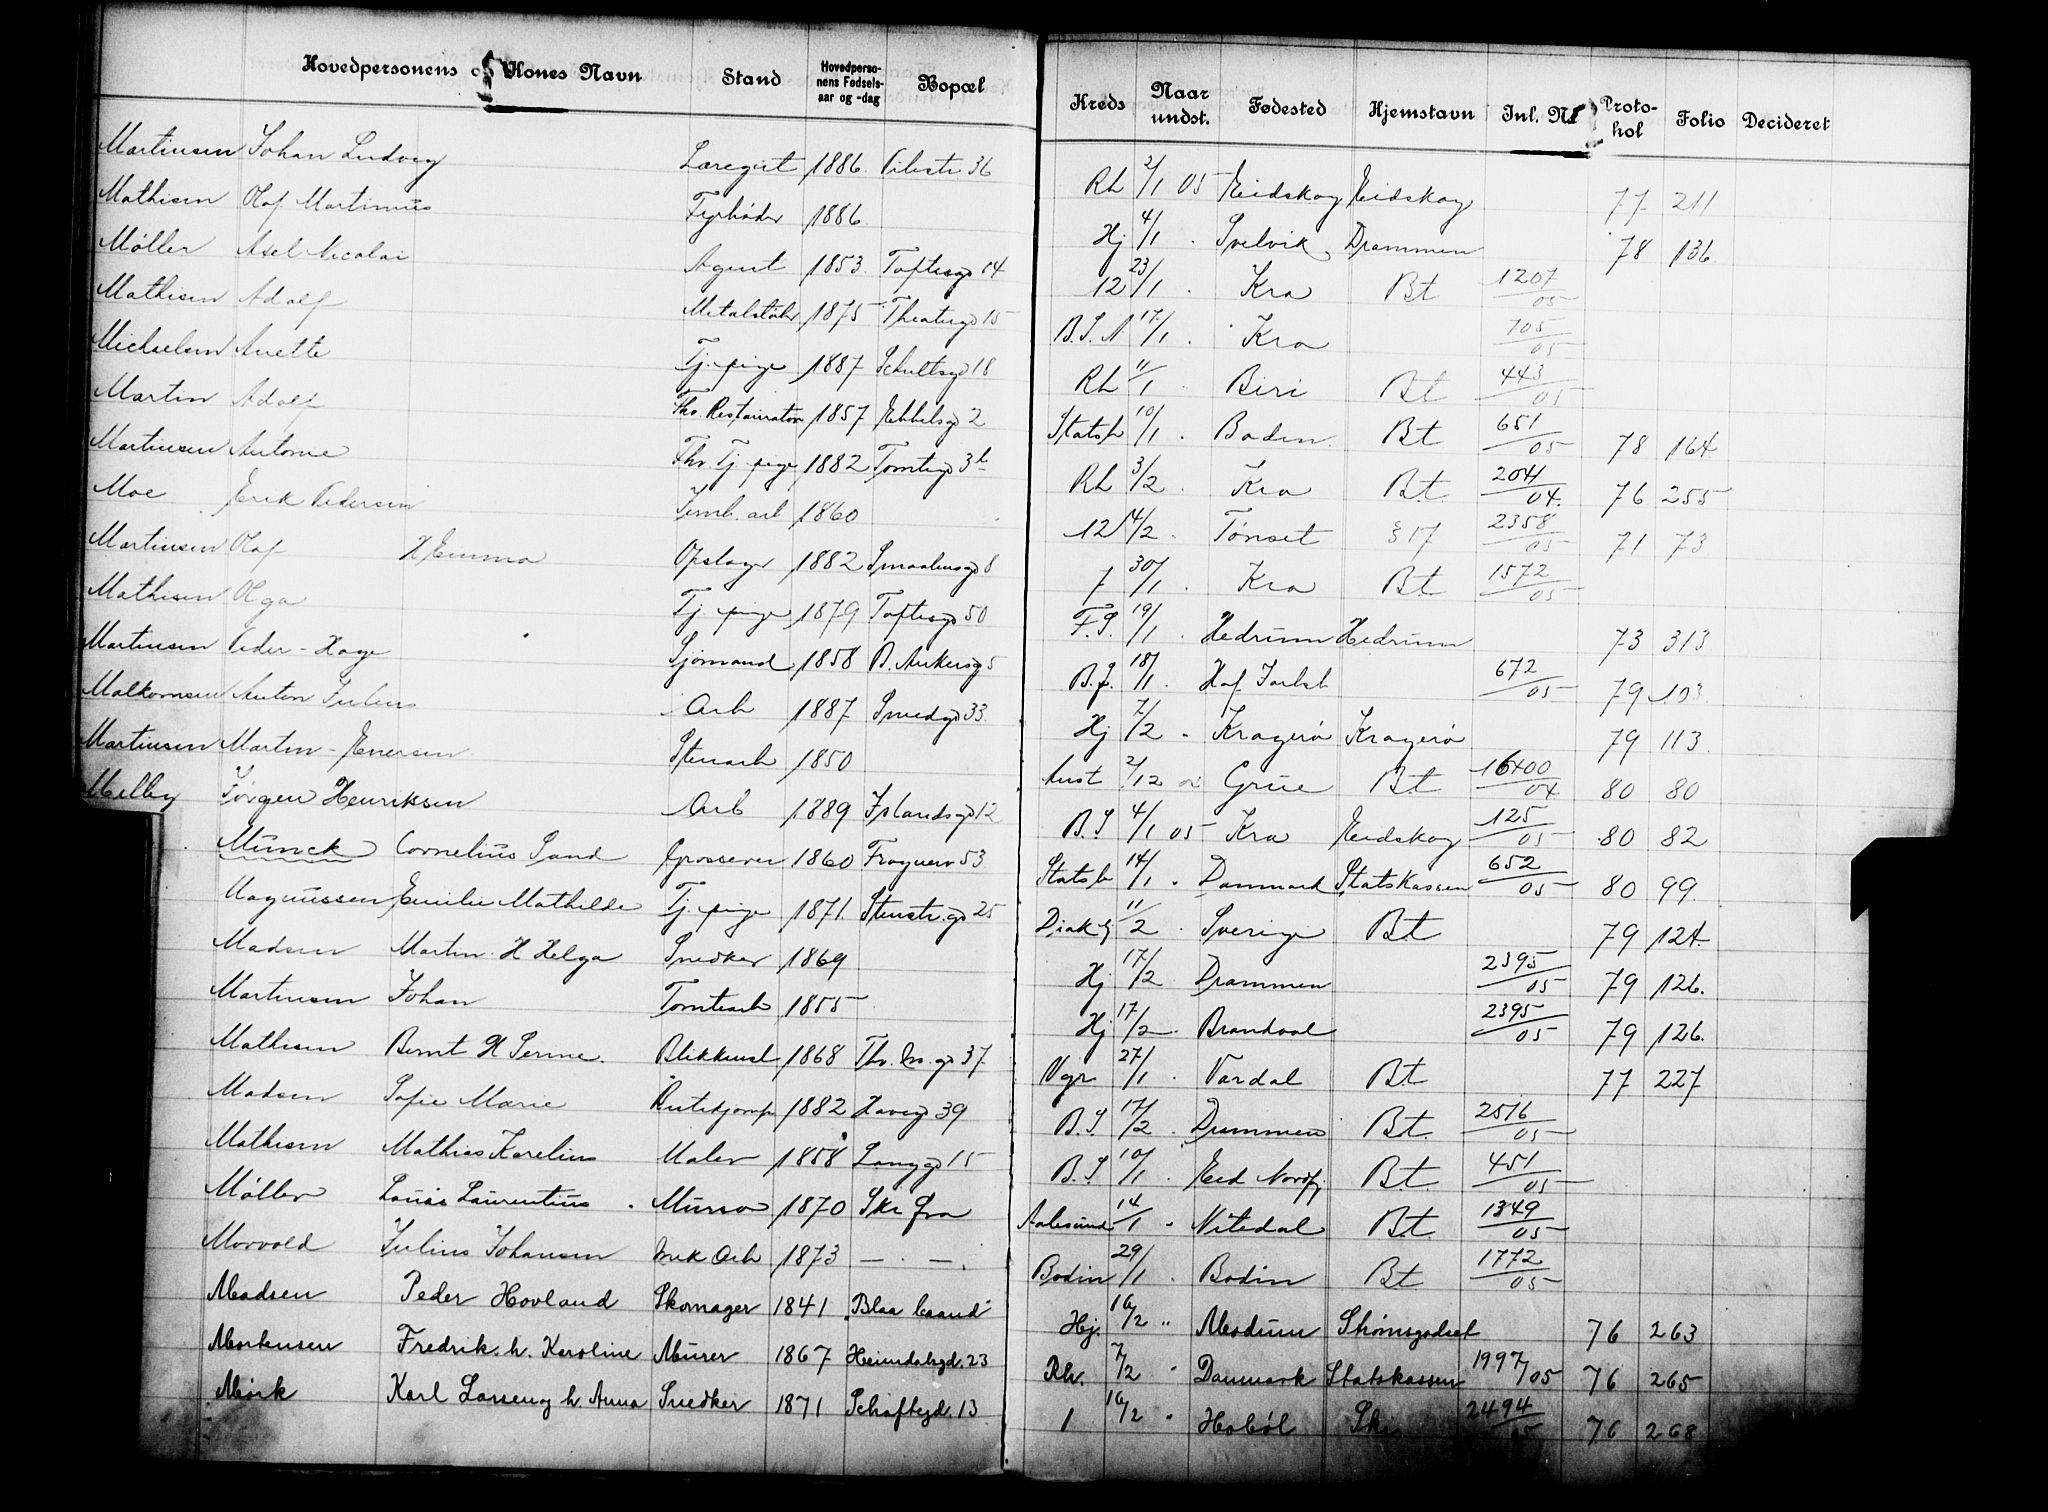 Hovedpersonens og Kones Navn Stand Hovedpersonens Fødselsaar og -dag Bopæl Kreds Naar undst. Fødested Hjemstavn Inl. No Protokol Folio Decideret
Martinsen Johan Ludvig 1886 Pilestr 36 Rh 2/1 05 Eidskog Eidskog 77 211
Mathisen Olaf Martinius Fyrbøder 1886 Hj 4/1 Svelvik Drammen 78 136
Møller Axel Nicolai Agent 1853 Toftesgd 14 12 23/1 Kra Bt 1207/05
Mathisen Adolf 1875 Theatergd 15 B.S. 17/1 Kra 705/05
Michaelsen Anette Tj. pige 1887 Schultsgd 18 Rh 11/1 Biri Bt 443/05
Martin Adolf Fhv. Restauratør 1857 2 Statsb 10/1 Bodin Bt 651/05 78 164
Martinsen Antonie Fhv. Tj. pige 1882 Tomtegd 3b Rh 3/2 Kra Bt 2041/04. 76 255
Moe Erik Pedersen arb 1860 12 14/2 Tønset § 17 2358/05 71 73
Martinsen Olaf H Emma Opslager 1882 Smaalensgd 8 7 30/1 Kra Bt 1572/05
Mathisen Olga Tj. pige 1879 Toftesgd 50 F.S. 19/1 Hedrum Hedrum 73 313
Martinsen Peder - Hage Sjømand 1858 B. Ankersgd 5 18/1 672/05 79 103
Malkomsen Anton Julius Arb 1887 Smedgd 33 Hj 7/2 Kragerø Kragerø 79 113
Martinsen Martin - Enersen Stenarb 1850 2/12 Grue Bt 16400/04 80 80
Melby Jørgen Henriksen Arb 1889 Islandsgd 12 B.S 4/1 05 Kra Eidskog 125/05 80 82
Munck Cornelius Sand Grosserer 1860 Frognerv 53 Statsb 14/1 Danmark Statskassen 652/05 80 99
Magnussen Emilie Mathilde Tj. pige 1871 Stenstr.gd 25 Diak 11/2 Sverige Bt 79 124
Madsen Martin H Helga Snedker 1869 Hj 17/2 Drammen 2395/05 79 126.
Martinsen Johan Tomtearb 1855 Hj 17/2 Brandval 2395/05 79 126.
Mathisen Bernt H Perine. Blikkensl 1868 37 Vgr 27/1 Vardal Bt 77 227
Madsen Sofie Marie 1882 Havegd 39 B.S 17/2 Drammen Bt 2516/05
Mathisen Mathias Karelius Maler 1858 Langgd 15 B.S 10/1 Eid Nordfj Bt 451/05
Møller Louis Laurentius Murer 1870 Aalesund 14/1 Nitedal Bt 1349/05
Morvold Julius Johansen Arb 1873 — — Bodin 29/1 Bodin Bt 1772/05
Madsen Peder Hovland Skomager 1841 Blaa baand Hj. 16/2 " Modum Strømsgodset 76 263
Mortensen Fredrik. h. Karoline Murer 1867 Heimdalsgd. 23 Rh. 7/2 " Danmark Statskassen 1997/05 76 265
Mørk Karl Larsen og h. Anna Snedker 1871 Schaftegd. 13 1 16/2 " Hobøl Ski 2494/05 76 268